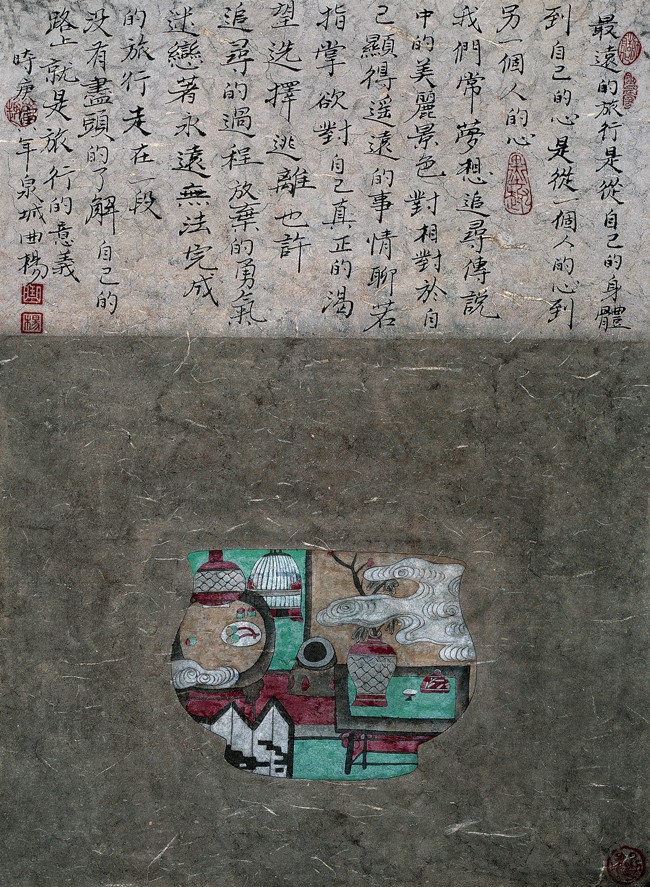 最遠的旅行是從自己的身體
到自己的心是從一個人的心到
另一個人的心
我們常夢想追尋傳說
中的美麗景色對相對於自
己顯得遥遠的事情聊若
指掌欲對自己真正的渴
望选擇逃離也許
追尋的過程放棄的勇氣
迷戀著永遠無法完成
的旅行走在一段
没有盡頭的了解自己的
路上就是旅行的意義
時庚年泉城曲楊
楊